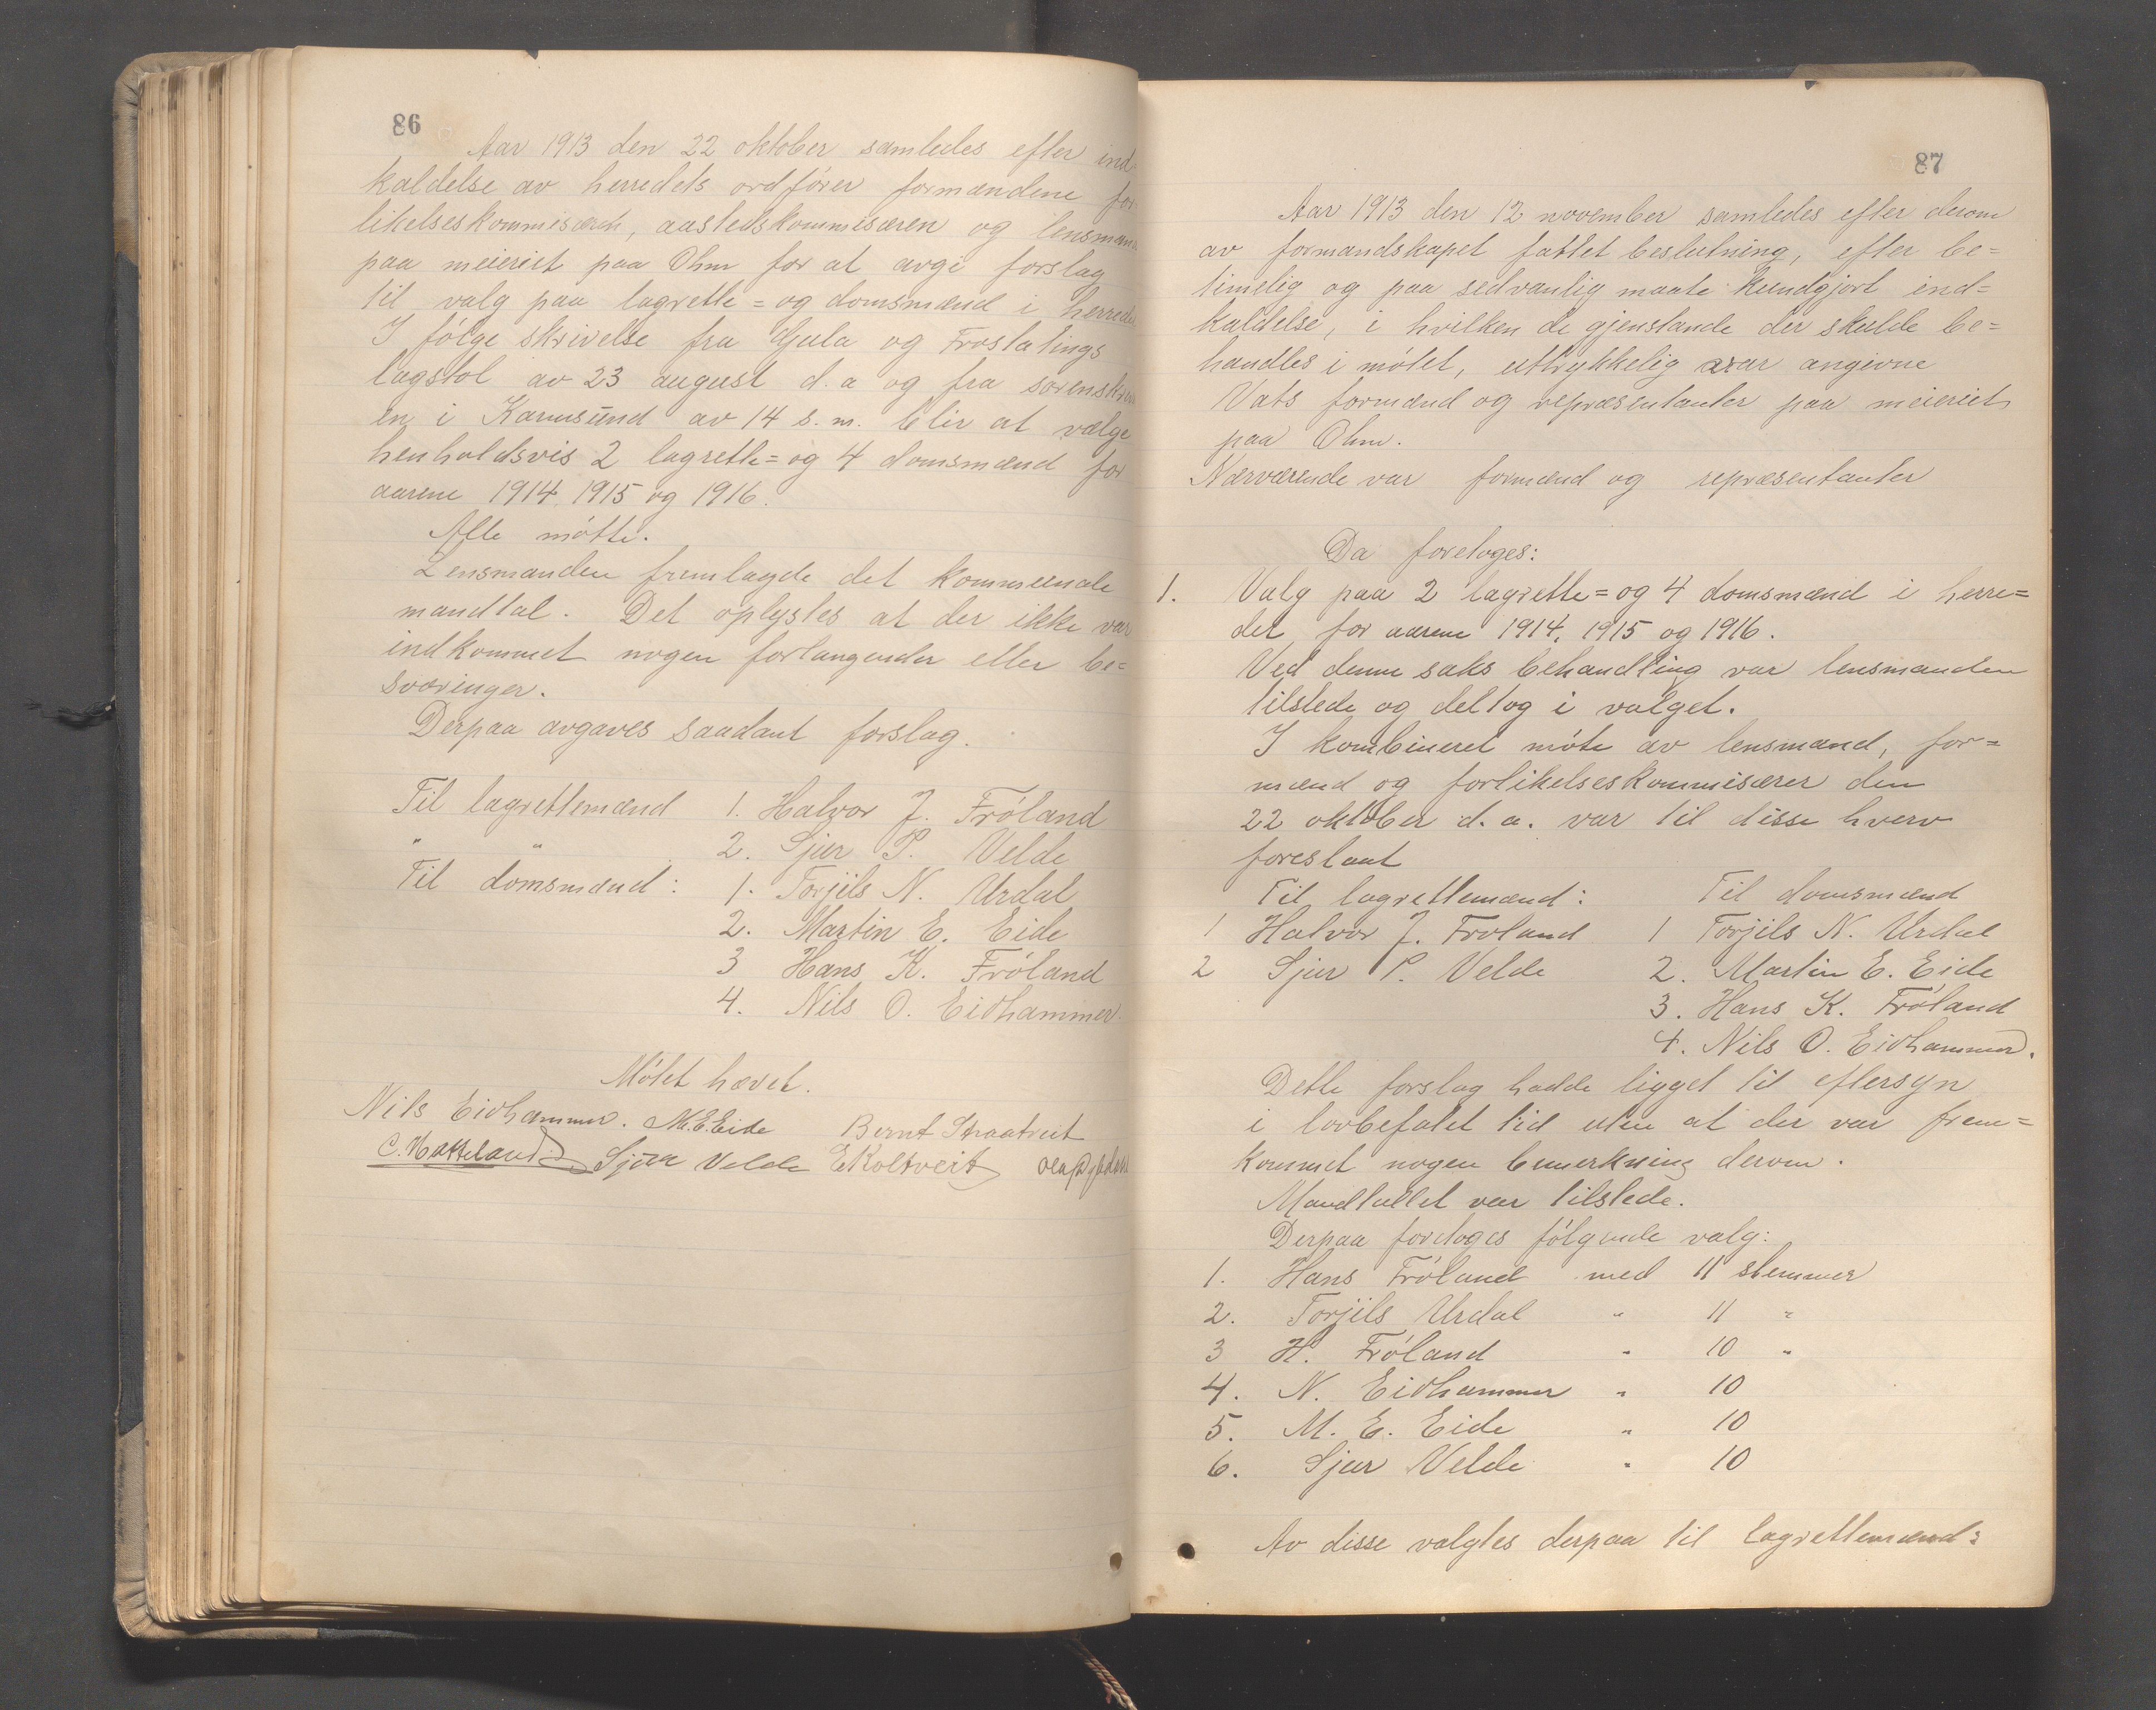 86
Aar 1913 den 22 oktober samledes efter ind-
kaldelse av herredets ordfører formændene for
likelseskommisæren, aastedskommisæren og lensmand
paa meieriet paa Ohm for at avgi forslag
til valg paa lagrette= og domsmænd i herredet
I følge skrivelse fra Gula og Frostatings
lagstol av 23 august d. a og fra sorenskriver
en i Karmsund av 14 s. m. blir at vælge
henholdsvis 2 lagrette= og 4 domsmænd for
aarene 1914, 1915 og 1916.
Alle møtte.
Lensmanden fremlagde det kommunale
mandtal. Det oplystes at der ikke var
indkommet nogen forlangender eller be=
sværinger.
Derpaa avgaves saadant forslag.
Til lagrettemænd 1. Halvor J. Frøland
" " 2. Sjur P. Velde
Til domsmænd: 1. Torjils N. Urdal
2. Martin E. Eide
3 Hans K. Frøland
4. Nils O. Eidhammer.
Møtet hævet.
Nils Eidhammer. M.E. Eide Bernt Straatveit
C. Hatteland Sjur Velde E Koltveit
87
Aar 1913 den 12 november samledes efter derom
av formandskapet fattet beslutning, efter be=
timelig og paa sedvanlig maate kundgjort ind=
kaldelse, i hvilken de gjenstande der skulde be=
handles i møtet, uttrykkelig var angivne
Vats formænd og repræsentanter paa meieriet
paa Ohm.
Nærværende var formænd og repræsentanter
Da foretoges:
1. Valg paa 2 lagrette= og 4 domsmænd i herre=
det for aarene 1914, 1915 og 1916.
Ved denne saks behandling var lensmanden
tilstede og deltog i valget.
I kombineret møte av lensmænd, for=
mænd og forlikelseskommisærer den
22 oktober d. a. var til disse hverv
foreslaat
Til lagrettemænd: Til domsmænd
1 Halvor J. Froland 1 Torjils N. Urdal
2 Sjur P. Velde 2. Martin E. Eide
3. Hans K. Frøland
4. Nils O. Eidhammer.
Dette forslag hadde ligget til eftersyn
i lovbefalet tid uten at der var frem=
kommet nogen bemerkning derom.
Mandtallet var tilstede.
Derpaa foretoges følgende valg:
1. Hans Frøland med 11 stemmer
2. Torjils Urdal " 11 "
3 H. Frøland " 10 "
4. N. Eidhammer " 10
5. M. E. Eide " 10
6. Sjur Velde " 10
Av disse valgtes derpaa til lagrettemænd: